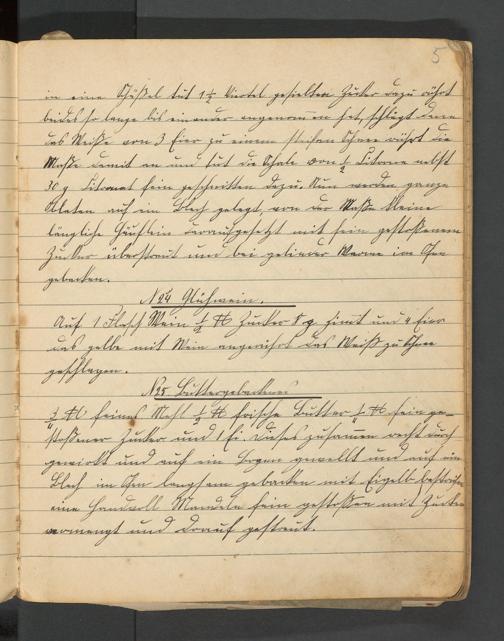 5
in eine Schüßel tut 1 1/2 Viertel gesiebten Zucker dazu rührt
beides so lange bis einander angenommen hat, schlägt dann
das Weiße von 3 Eier zu einem steifen Schnee rührt die
Maße damit an und tut die Schale von 1/2 Citrone nebst
30 g Citronat fein geschnitten dazu. Nun werden ganze
Oblaten auf ein Blech gelegt, von der Maße kleine
längliche Häuflein daraufgesetzt mit fein gestoßenem
Zucker überstreut und bei gelinder Wärme im Ofen
gebacken.
N24 Glühwein.
Auf 1 Flasch Wein 1/2 ℔ Zucker 8 g Zimt und 4 Eier
das gelbe mit Wein angerührt das Weiß zu Schnee
geschlagen.
N25 Buttergebackenes
1/2 ℔ feines Mehl 1/2 ℔ frische Butter 1/4 ℔ fein ge-
stoßener Zucker und 1 Ei. Dieses zusammen recht durch
gewirkt und auf ein gewellt und auf ein
Blech im Ofen langsam gebacken mit Eigelb bestrichen
eine Handvoll Mandeln fein gestoßen mit Zucker
vermengt und darauf gestreut.